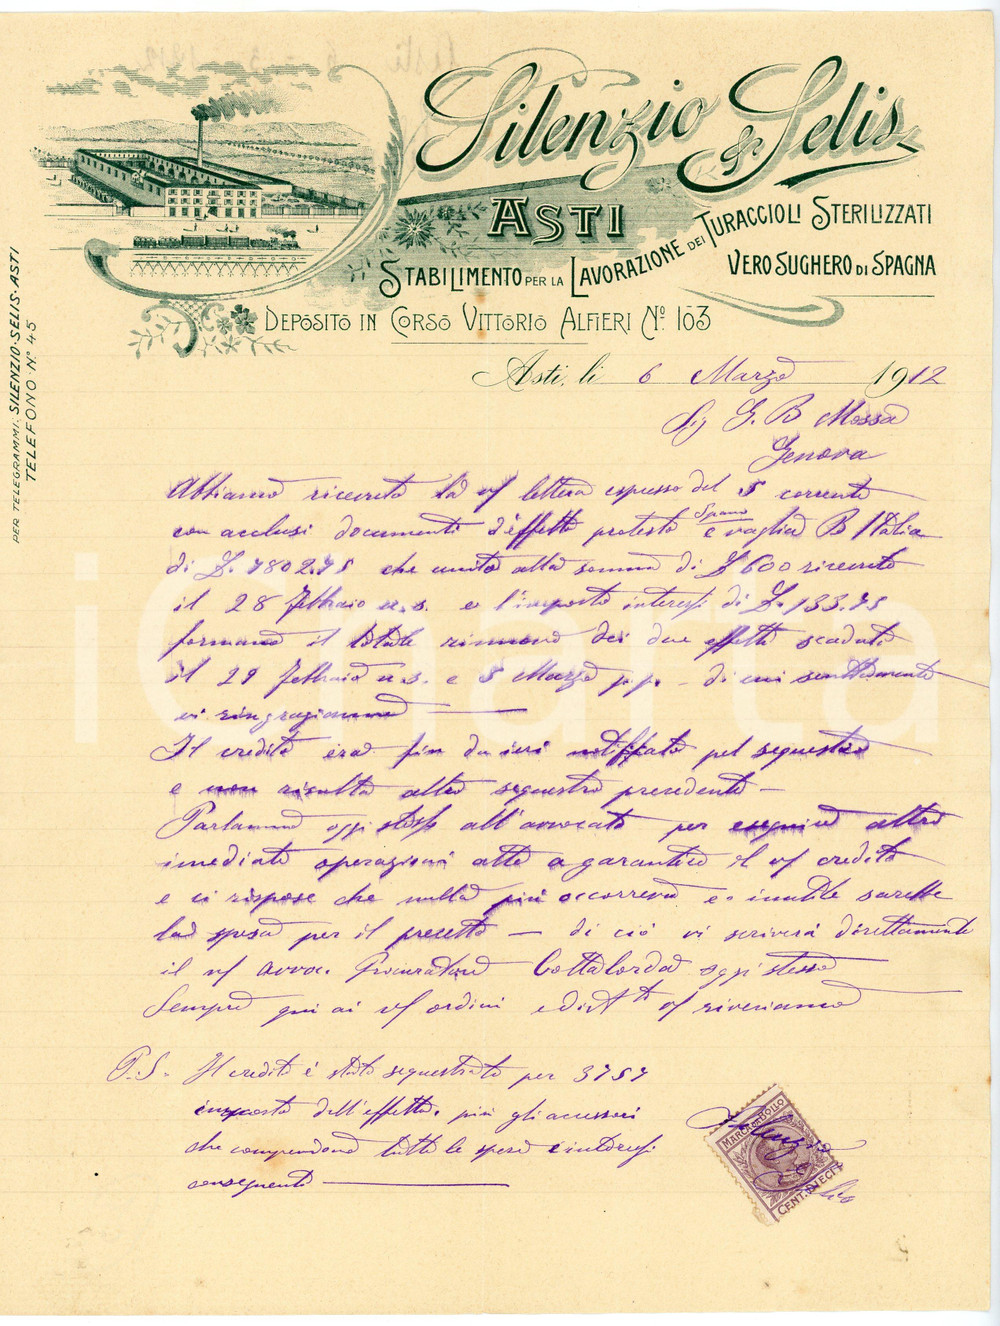 Silenzio & Selis
ASTI
STABILIMENTO PER LA LAVORAZIONE DEI TURACCIOLI STERILIZZATI
VERO SUGHERO DI SPAGNA
DEPOSITO IN CORSO VITTORIO ALFIERI No. 103
PER TELEGRAMMI: SILENZIO-SELIS-ASTI
TELEFONO No 45
Asti, li 6 Marzo 1912
Sig G. B. Mossa
Genova
Abbiamo ricevuto la v/ lettera espresso del 5 corrente
con acclusi documenti d'effetto protesto Spano e vaglia B Italia
di £. 7802.75 che unito alla somma di £ 600 ricevuto
il 28 Febbraio u.s. e l'importo interessi di £. 133.75
formano il totale rimesso dei due effetti scaduti
il 29 Febbraio u.s. e 5 Marzo p.p. - di cui sentitamente
vi ringraziamo
Il credito era fin da ieri notificato pel sequestro
e non risulta altro sequestro precedente -
Parlammo oggi stesso all'avvocato per eseguire altre
imediate operazioni atte a garantire il v/ credito
e ci rispose che nulla più occorreva e inutile sarebbe
la spesa per il precetto - di ciò vi scriverà direttamente
il v/ avvo. Procuratore Cottalorda oggi stesso
Sempre qui ai v/ ordini e dist.ti v/ riveriamo
P.S. Il credito è stato sequestrato per 3757
importo dell'effetto, più gli accessori
che comprendono tutte le spese e interessi
conseguenti
MARCA DA BOLLO
CENT. DIECI
Silenzio & Selis
iCharta